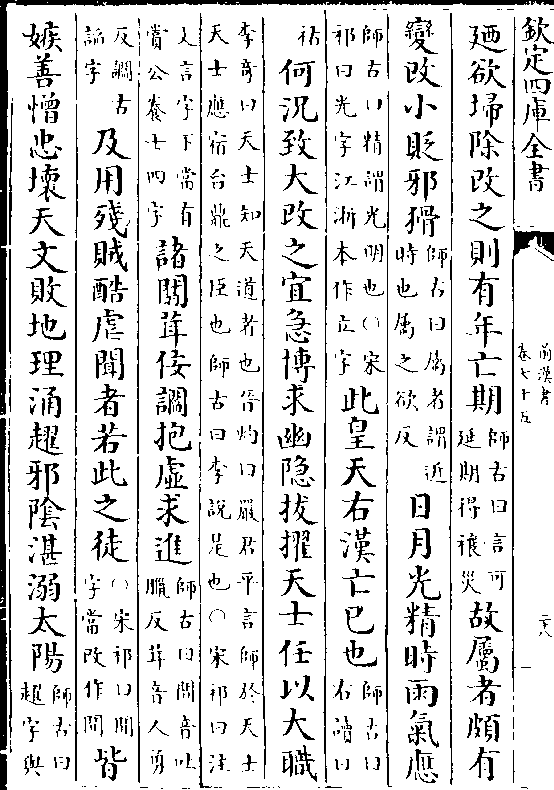 欽定四庫全書
前漢書
卷七十五
廼欲埽除改之則有年亡期師古曰言可延期得禳災故屬者頗有
變改小貶邪猾師古曰屬者謂近時也屬之欲反日月光精時雨氣應
師古曰精謂光明也○宋祁曰光字江浙本作立字此皇天右漢亡已也師古曰右讀曰
祐何況致大改之宜急博求幽隐拔擢天士任以大職
李竒曰天士知天道者也晉灼曰嚴君平言師於天士天士應宿台鼎之臣也師古曰李說是也○宋祁曰注
又言字下當有賞公養士四字諸闒茸佞讇抱虛求進師古曰闒音吐臘反茸音人勇
反讇古謟字及用殘賊酷虐聞者若此之徒○宋祁曰聞字當改作聞皆
嫉善憎忠壞天文敗地理涌趯邪隂湛溺太陽師古曰趯字與